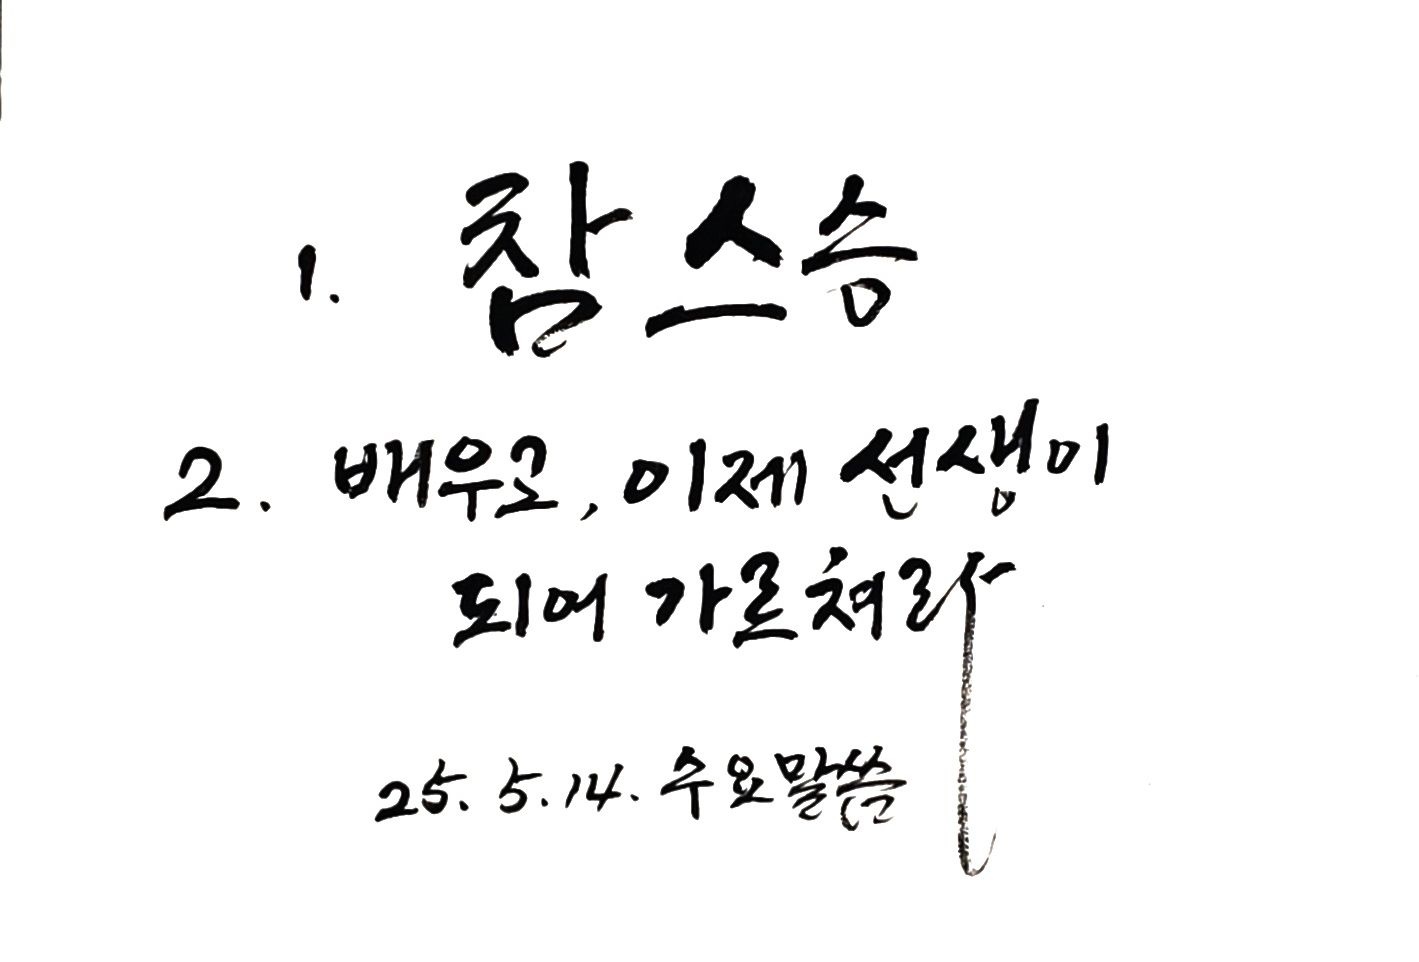 1. 참 스승
2. 배우고, 이제 선생이
되어 가르쳐라
25. 5. 14. 수요말씀